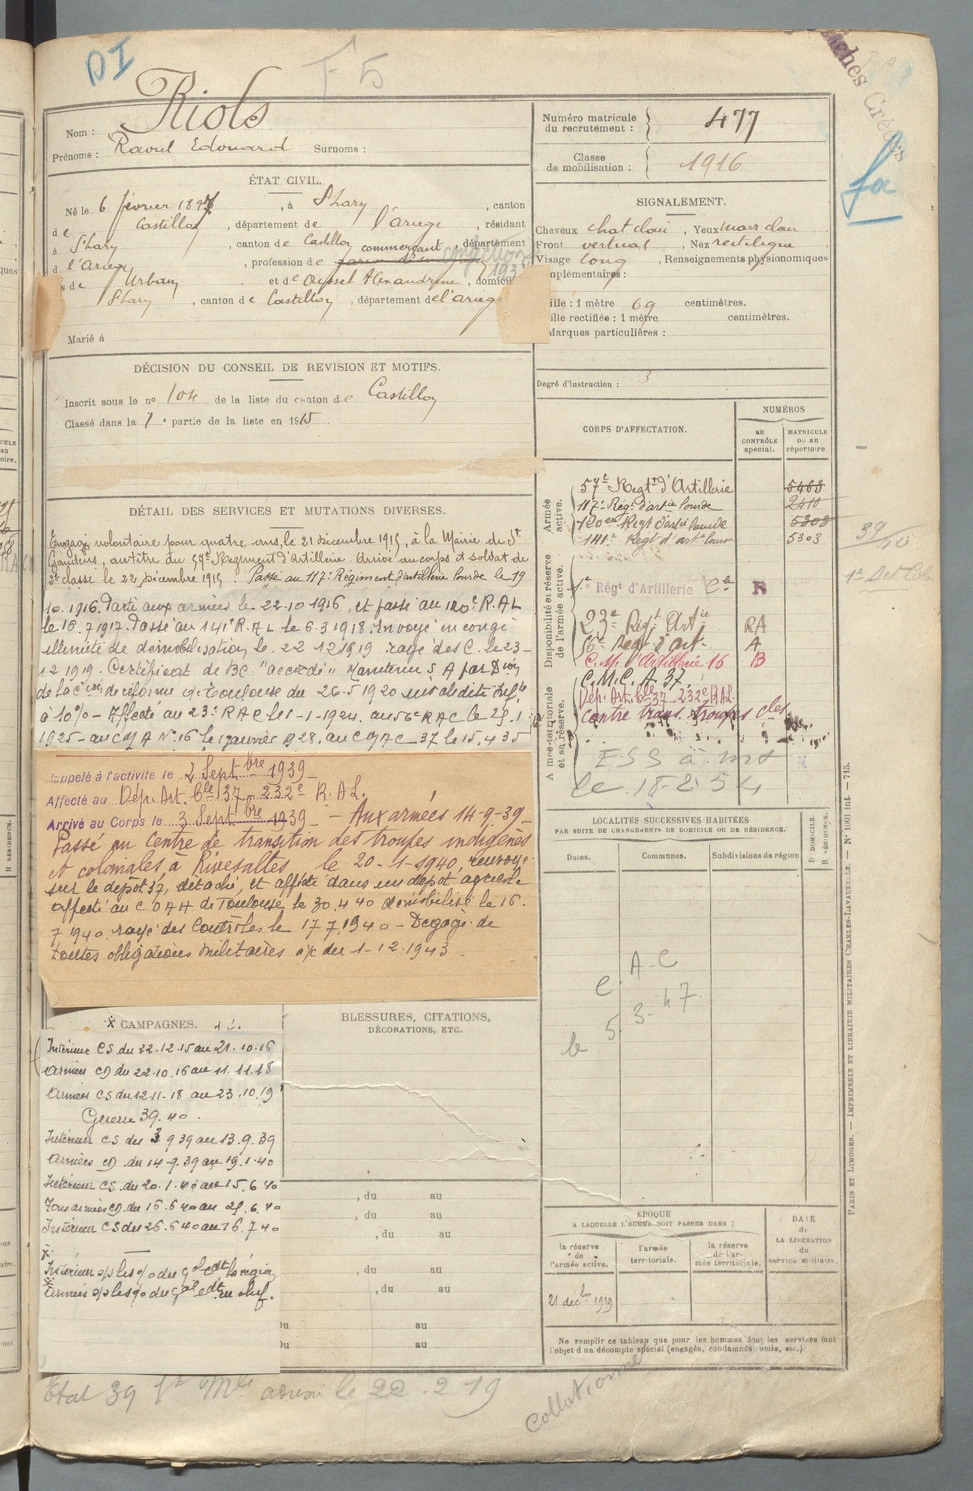 DI
F5
Fiches Créées
fa
Nom : Riols
Prénoms : Raoul Edouard Surnoms :
Numéro matricule du recrutement : 477
Classe de mobilisation : 1916
ÉTAT CIVIL.
Né le 6 février 1897, à Thary, canton
de Castillon, département de l'ariège, résidant
à Thary, canton de Castillon, département
d l'Ariège, profession de commerçant
1932
s de Urbain et de Alexandrine, domicilié
Thary, canton de Castillon, département de l'ariège
Marié à
SIGNALEMENT.
Cheveux chat clair, Yeux marr clair
Front vertical, Nez rectiligne
Visage long, Renseignements physionomiques
complémentaires :
Taille : 1 mètre 69 centimètres.
Taille rectifiée : 1 mètre centimètres.
Marques particulières :
DÉCISION DU CONSEIL DE REVISION ET MOTIFS.
Inscrit sous le n° 104 de la liste du canton de Castillon
Classé dans la 1e partie de la liste en 1915
Degré d'instruction : 3
CORPS D'AFFECTATION.
NUMÉROS
au CONTRÔLE spécial.
MATRICULE ou au répertoire.
Armée active.
57e Regt d'Artillerie
117e Régt d'artie lourde 2410
120e Regt d'artie lourde 5303
141e Regt d'art lourde 5303
Disponibilité et réserve de l'armée active.
Régt d'Artillerie Cle R
23e Regt Artie RA
56e Regt d'art. A
C.M. d'Artillerie 16 B
C.M.C.A. 37.
Armée territoriale et sa réserve.
Dép. Art. Cle 37 - 232e RAL
Centre trans. troupes cles
ESS à mt
le 18-2-54
39/40
DÉTAIL DES SERVICES ET MUTATIONS DIVERSES.
Engagé volontaire pour quatre ans, le 21 décembre 1915, à la Mairie de St
Gaudens, au titre du 57e Régiment d'Artillerie. Arrivé au corps et soldat de
2e classe le 22 Décembre 1915. Passé au 117e Régiment d'artillerie lourde le 19
10.1916. Parti aux armées le 22-10 1916, et passé au 120e R.A.L
le 16.7 1917. Passé au 141e R.A.L le 6.3 1918. Envoyé en congé
illimité de démobilisation le 22 12 1919 rayé des C. le 23-
12 1919. Certificat de BC. "accordé" Maintenu S. A par Don
de la Con de réforme de Toulouse du 26.5 1920
à 10% - Affecté au 23e RAC le 1-1-1924. au 56e RAC le 25.1
1925 - au CMA N° 16 le 1 janvier 1928. au CMAC 37 le 15.4 35
Rappelé à l'activité le 2 Septbre 1939
Affecté au Dép. Art. Cle 37 - 232e R.A.L.
Arrivé au Corps le 3 Septbre 1939 - Aux armées 14-9-39-
Passé au Centre de transition des troupes indigènes
et coloniales à Rivesaltes le 20-1-1940, renvoyé
sur le dépôt 37, détaché, et affecté dans un dépôt agricole
affecté au C O A A de Toulouse le 30.4 40 démobilisé le 16.
7 1940. rayé des Contrôles le 17 7 1940 - Dégagé de
toutes obligations militaires à/c du 1-12-1943.
LOCALITÉS SUCCESSIVES HABITÉES
PAR SUITE DE CHANGEMENTS DE DOMICILE OU DE RÉSIDENCE.
Dates. Communes. Subdivisions de région
D. DOMICILE. R. RÉSIDENCE.
C. A-C
le 5 3-47
CAMPAGNES.
Intérieur CS du 22.12.15 au 21.10.16
Armées CD du 22.10.16 au 11.11.18
Armées CS du 12.11.18 au 23.10.19
Guerre 39.40.
Intérieur CS du 3 9 39 au 13.9.39
Armées CD du 14-9.39 au 19.1.40
Intérieur CS du 20.1.40 au 15.6 40
Zone armées CD du 16.6 40 au 25.6.40
Intérieur CS du 26.6 40 au 16.7 40
Intérieur s/s les o/ du Gal Cdt la région
Armées s/s les o/ du Gal Cdt en chef.
BLESSURES, CITATIONS, DÉCORATIONS, ETC.
, du au
, du au
, du au
, du au
, du au
Du au
Du au
ÉPOQUE
A LAQUELLE L'HOMME DOIT PASSER DANS :
la réserve de l'armée active.
l'armée territoriale.
la réserve de l'armée territoriale.
DATE de LA LIBÉRATION du service militaire.
21 décbre 1919
Ne remplir ce tableau que pour les hommes dont les services font
l'objet d'un décompte spécial (engagés, condamnés, omis, etc.)
PARIS ET LIMOGES. — IMPRIMERIE ET LIBRAIRIE MILITAIRES CHARLES-LAVAUZELLE. — N° 1001 int. — 715.
Etat 39 le 22-2-19
Collationné